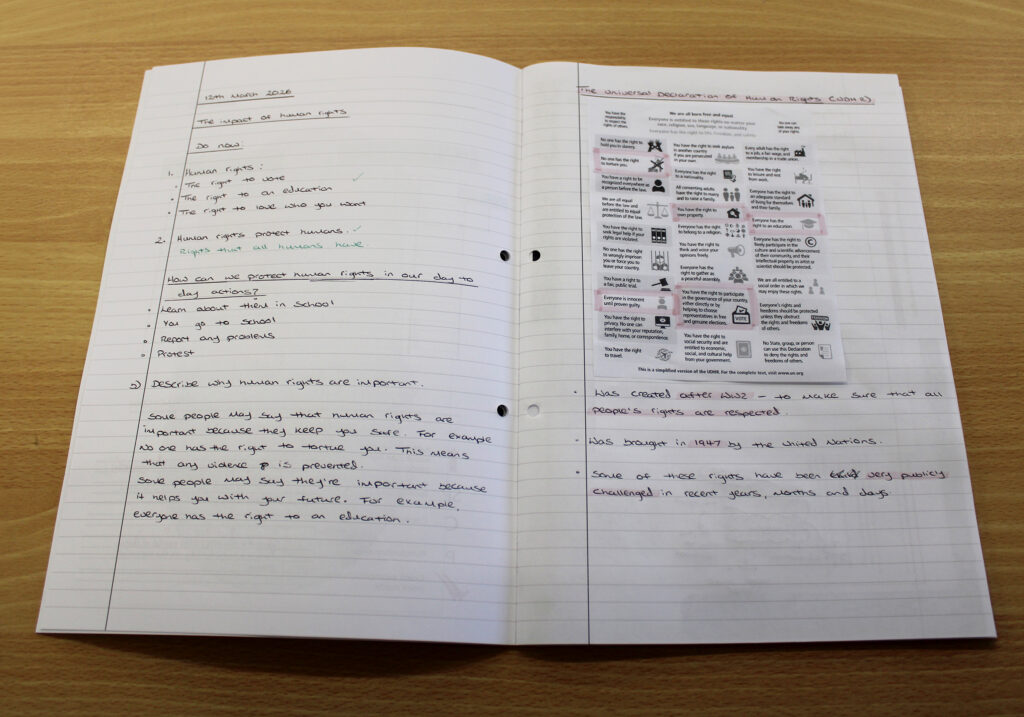 12th March 2026
The impact of human rights
Do now:
1. Human rights:
• The right to vote
• The right to an education
• The right to love who you want
2. Human rights protect humans.
Rights that all humans have
How can we protect human rights in our day to
day actions?
• Learn about them in school
• You go to school
• Report any problems
• Protest
Describe why human rights are important.
Some people may say that human rights are
important because they keep you sure. For example
no one has the right to tortue you. This means
that any violence is prevented.
Some people may say they're important because
it helps you with your future. For example,
everyone has the right to an education.
The Universal Declaration of Human Rights (UDHR).
You have the
responsibility
to respect the
rights of others.
We are all born free and equal
Everyone is entitled to these rights no matter your
race, religion, sex, language, or nationality.
Everyone has the right to life, freedom, and safety.
No one can
take away any
of your rights.
No one has the right to
hold you in slavery.
No one has the right
to torture you.
You have a right to be
recognized everywhere as
a person before the law.
We are all equal
before the law and
are entitled to equal
protection of the law.
You have the right to
seek legal help if your
rights are violated.
No one has the right
to wrongly imprison
you or force you to
leave your country.
You have a right to
a fair public trial.
Everyone is innocent
until proven guilty.
You have the right to
privacy. No one can
interfere with your reputation,
family, home, or correspondence.
You have the right
to travel.
You have the right to seek asylum
in another country
if you are persecuted
in your own.
Everyone has the right
to a nationality.
All consenting adults
have the right to marry
and to raise a family.
You have the right to
own property.
Everyone has the right
to belong to a religion.
You have the right to
think and voice your
opinions freely.
Everyone has the
right to gather as
a peaceful assembly.
You have the right to participate
in the governance of your country,
either directly or by
helping to choose
representatives in free
and genuine elections.
VOTE
You have the right to
social security and are
entitled to economic,
social, and cultural help
from your government.
Every adult has the right
to a job, a fair wage, and
membership in a trade union.
You have the right
to leisure and rest
from work.
Everyone has the right to
an adequate standard
of living for themselves
and their family.
Everyone has the
right to an education.
Everyone has the right to
freely participate in the
culture and scientific advancement
of their community, and their
intellectual property as artist or
scientist should be protected.
©
We are all entitled to a
social order in which we
may enjoy these rights.
Everyone's rights and
freedoms should be protected
unless they obstruct
the rights and freedoms
of others.
FREEDOM
No State, group, or person
can use this Declaration
to deny the rights and
freedoms of others.
This is a simplified version of the UDHR. For the complete text, visit www.un.org
• Was created after WW2 – to make sure that all
people's rights are respected.
• Was brought in 1947 by the United Nations.
• Some of these rights have been very publicly
challenged in recent years, months and days.